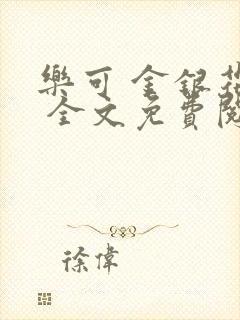 樂可 金銀花
全文免費閱
徐偉